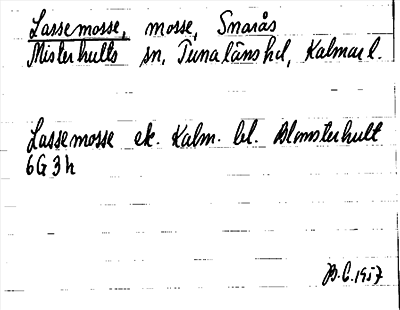 Lassemosse, mosse, Snarås
Misterhults sn, Tunaläns hd, Kalmar l.
Lassemosse ek. Kalm. bl. Blomsterhult
6G3h
B.C.1957